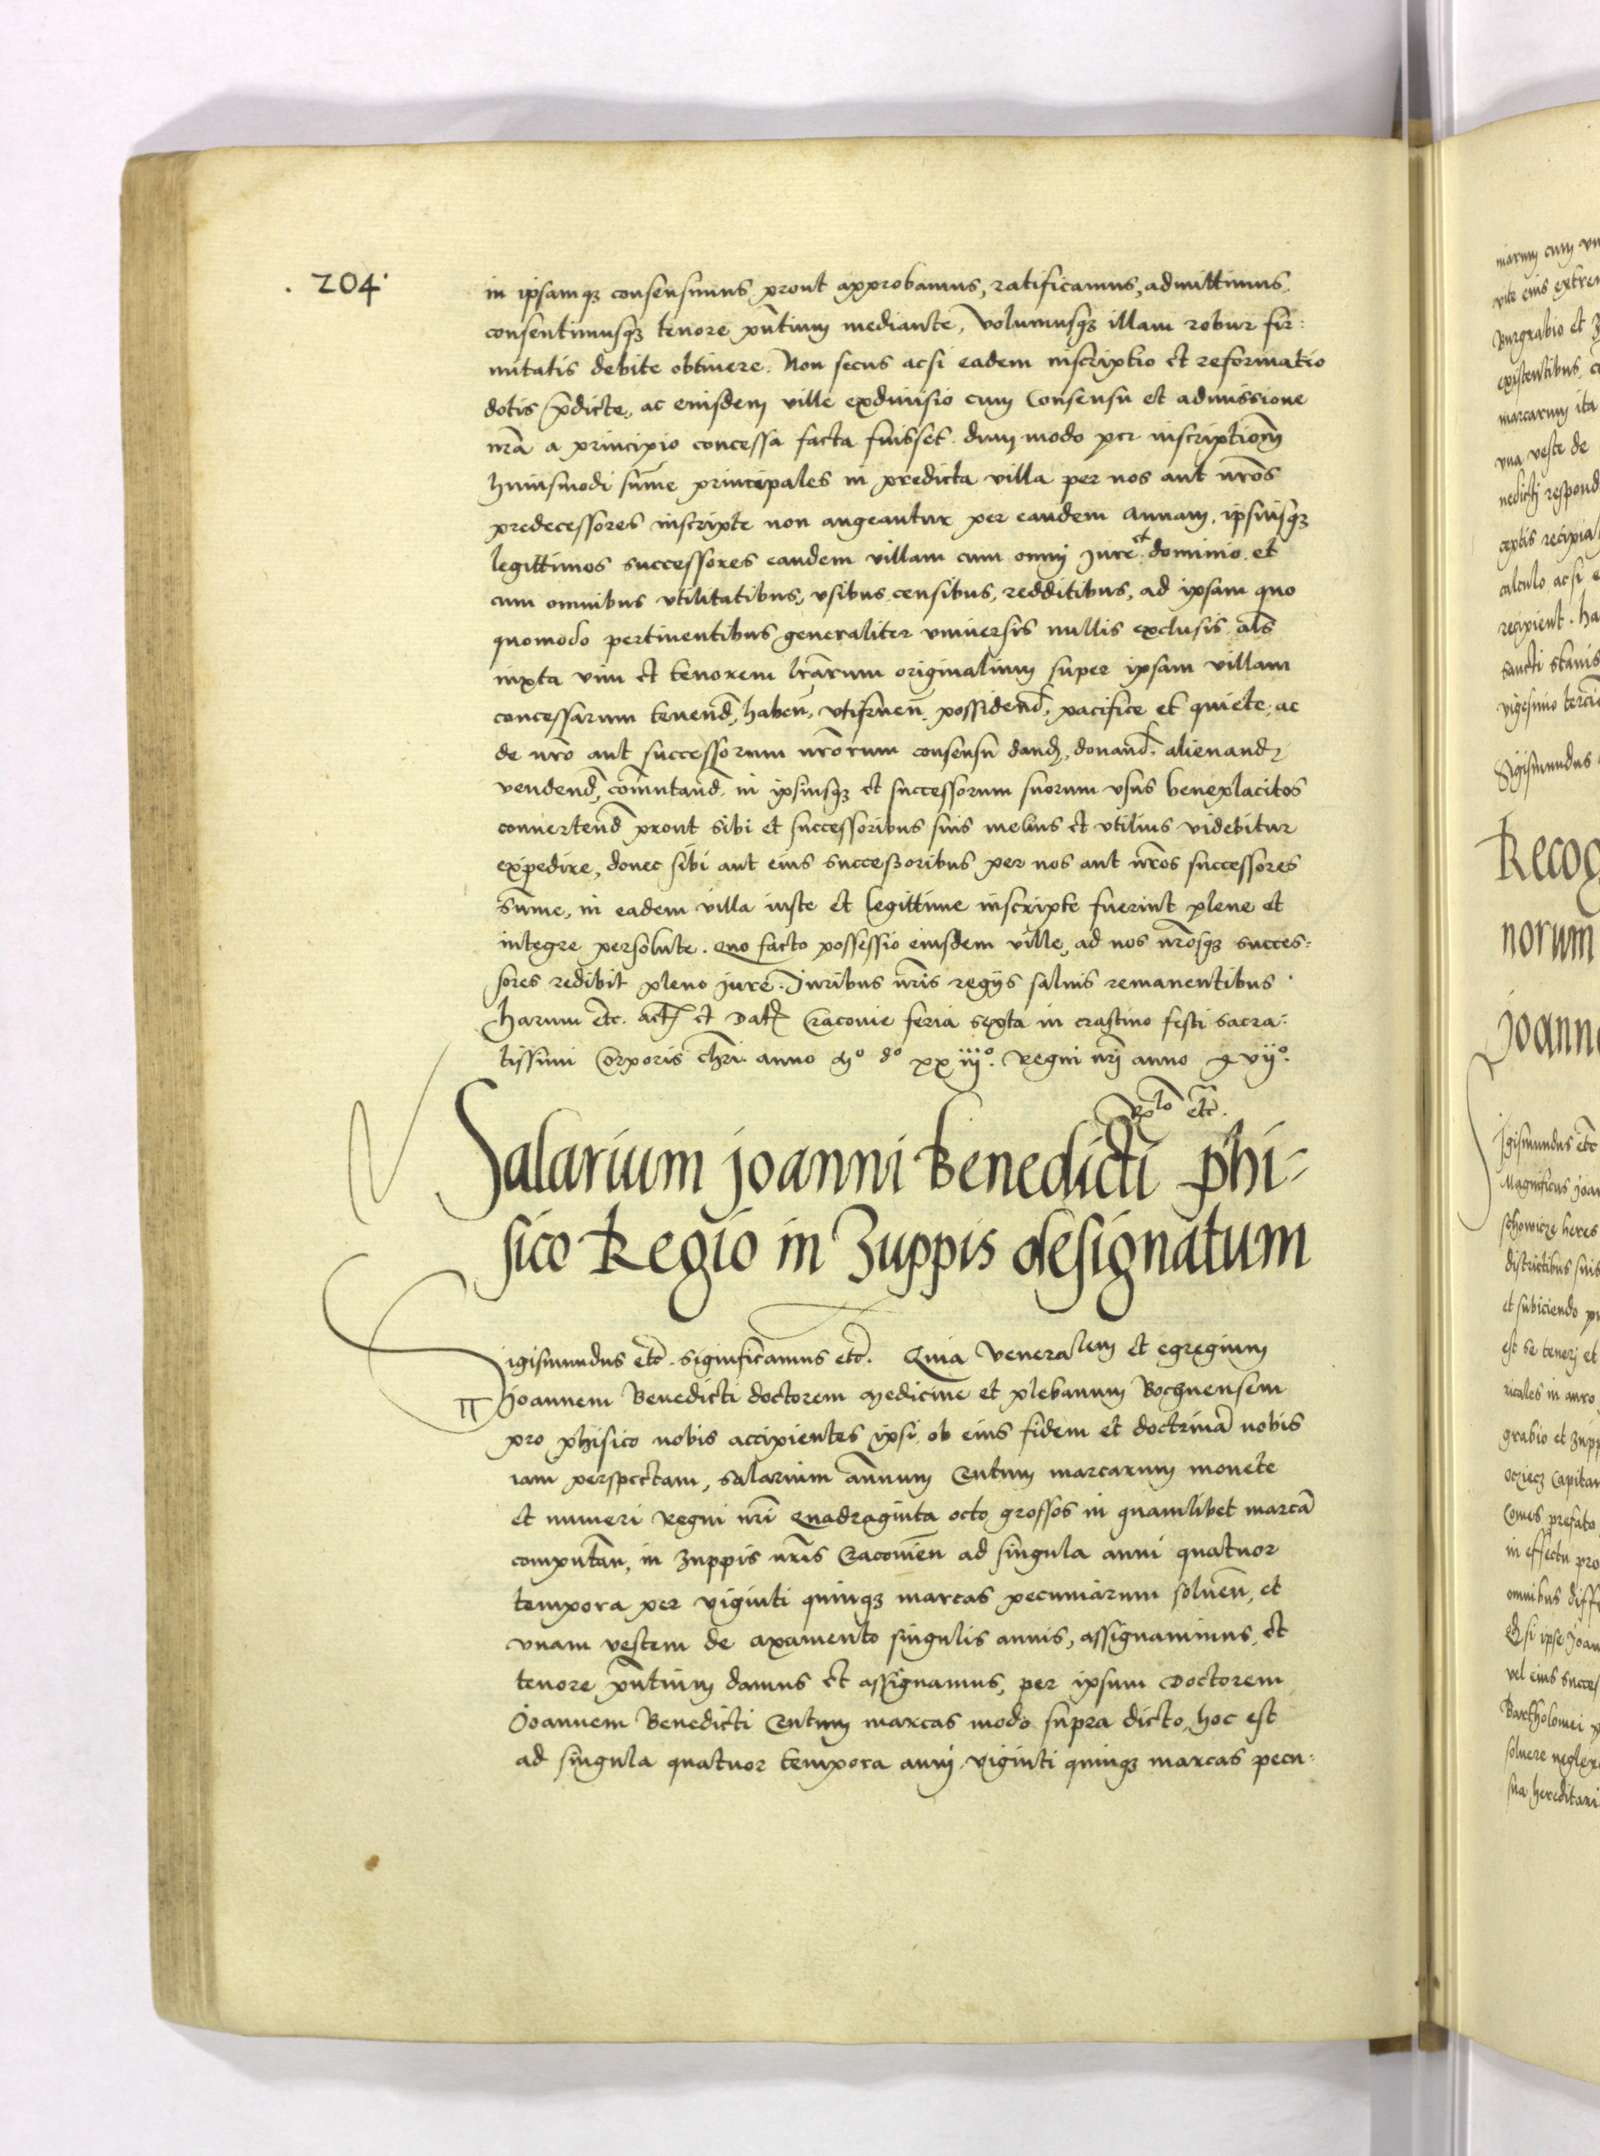 . 204.
in ipsamqʒ consensimus prout approbamus, ratificamus, admittimus,
consentimusqʒ tenore pn̄tium mediante, Volumusqʒ illam robur fir:
mitatis debite obtinere. Non secus acsi eadem inscriptio et reformatio
dotis p̄dicte, ac eiusdem ville exdiuisio cum Consensu et admissione
nr̄a a principio concessa facta fuisset. dum modo per inscriptionē
huiusmodi sum̄e principales in predicta villa per nos aut nr̄os
predecessores inscripte non augeantur per eandem Annam, ipsiusqʒ
legittimos successores eandem villam cum omni Jure et dominio et
cum omnibus vtilitatibus, vsibus, censibus, redditibus, ad ipsam quo
quomodo pertinentibus generaliter vniuersis nullis exclusis al̄s
iuxta vim et tenorem lr̄arum originalium super ipsam villam
concessarum tenend̄, haben̄, vtifruen̄, possidend̄, pacifice et quiete, ac
de nr̄o aut successorum nr̄orum consensu dand̄, donand̄, alienand̄
vendend̄, com̄utand̄ in ipsiusqʒ et successorum suorum vsus beneplacitos
conuertend̄ prout sibi et successoribus suis melius et vtilius videbitur
expedire, donec sibi aut eius successoribus per nos aut nr̄os successores
sum̄e, in eadem villa iuste et legittime inscripte fuerint plene et
integre persolute. Quo facto possessio eiusdem ville, ad nos nr̄osqʒ succes:
sores redibit pleno jure. Juribus nr̄is regijs saluis remanentibus.
Harum etc̄. act̄ et Dat̄ Cracouie feria sexta in crastino festi sacra:
tissimi Corporis chr̄i. anno Mº dº xxiijº. Regni nr̄j anno xvijº.
Rlo etc̄.
Salarium Joanni Benedicti phi-
sico Regio in Zuppis designatum
Sigismundus etc̄. significamus etc̄. Quia Veneralem et egregium
Joannem Benedicti doctorem Medicine et plebanum Bochnensem
pro phisico nobis accipientes ipsi ob eius fidem et doctrinā nobis
iam perspectam, salarium an̄uum Centum marcarum monete
et numeri Regni nr̄i Quadraginta octo grossos in quamlibet marcā
computan̄, in Zuppis nr̄is Cracouien̄ ad singula anni quatuor
tempora per viginti quinqʒ marcas pecuniarum soluen̄, et
vnam vestem de axamento singulis annis, assignauimus, et
tenore pn̄tium damus et assignamus, per ipsum Doctorem
Joannem Benedicti Centum marcas modo supra dicto, hoc est
ad singula quatuor tempora annj viginti quinqʒ marcas pecu:
vite eius extre
Burgrabio et Z
existentibus, c
marcarum ita
vna veste de
nedictj respond
ceptis recipia
calculo acsi e
recipient. Ha
sancti Stanis
vigesimo tercio
Sigismundus
Recog
norum
Joanne
Sigismundus etc̄
Magnificus Joan
heres
districtibus suis
et subiciendo p
est se tenerj et
in auro
grabio et Zupp
Capitan
Comes prefato
in effectu pro
omnibus diffe
Et si ipse Joan
vel eius succes
Bartholomei p
soluere neglexe
sua hereditari